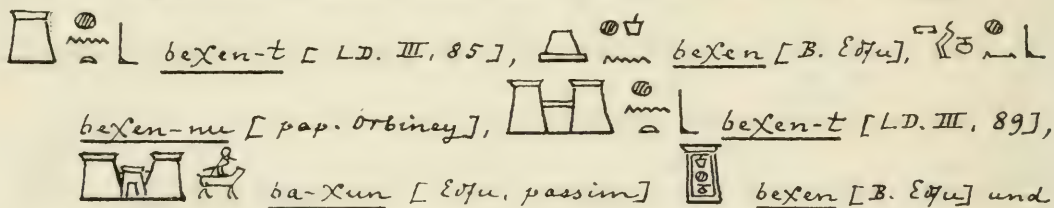 beχen-t [LD. III, 85], beχen [B. Edfu],
beχen-nu [pap. Orbiney], beχen-t [LD. III, 89],
ba-χun [Edfu, passim] beχen [B. Edfu] und